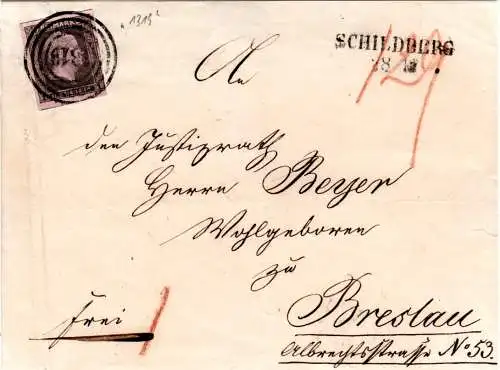 1319
SCHILDBERG
An
den Justizrath
Herrn Beyer
Wohlgeboren
zu
Breslau
Albrechtsstrasse No 53.
frei